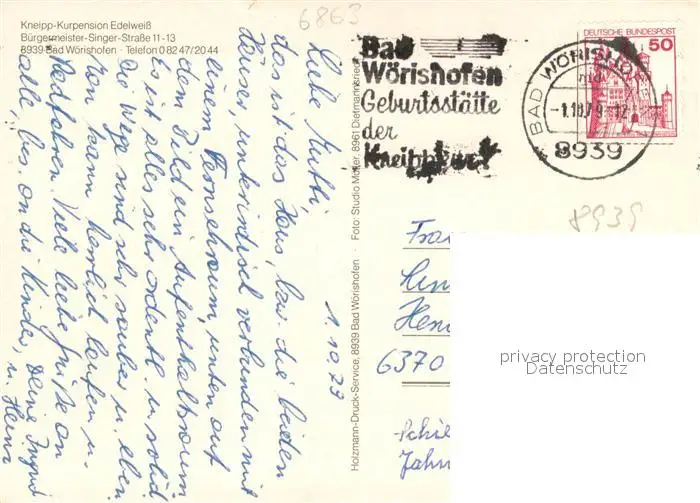 Kneipp-Kurpension Edelweiß
Bürgermeister-Singer-Straße 11-13
8939 Bad Wörishofen · Telefon 0 82 47/20 44
6863
Bad
Wörishofen
Geburtsstätte
der
Kneippkur!
BAD WÖRISHOFEN
-1.10.79-12
8939
DEUTSCHE BUNDESPOST
50
8939
1.10.79
Liebe Mutti,
das ist das Haus, bzw. die beiden
Häuser, unterirdisch verbunden mit
einem Fernsehraum, unten auf
dem Bild ein Aufenthaltsraum
Es ist alles sehr ordentl. u. solid
die Wege sind sehr sauber u. eben
Man kann herrlich laufen u.
Radfahren. Viele liebe Grüße an
alle, bes. an die Kinder, Deine Ingrid
u. Heinz
Holzmann-Druck-Service, 8939 Bad Wörishofen · Foto: Studio Müller, 8961 Dietmannsried
Frau
Hen
6370
Schil
Jahn
privacy protection
Datenschutz